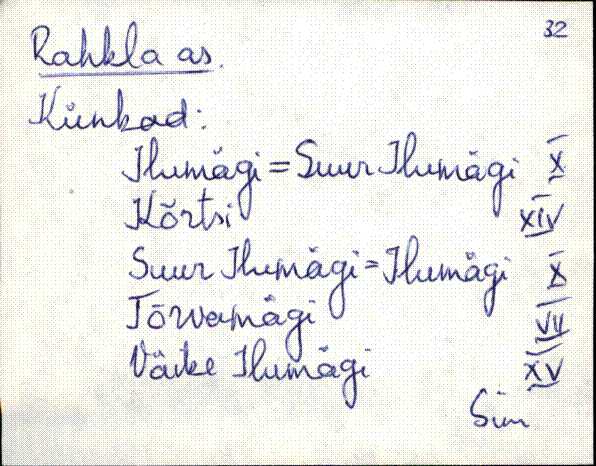 32
Rahkla as.
Künkad:
Ilumägi = Suur Ilumägi X
Kõrtsi XIV
Suur Ilumägi = Ilumägi X
Tõrvamägi VII
Väike Ilumägi XV
Sim